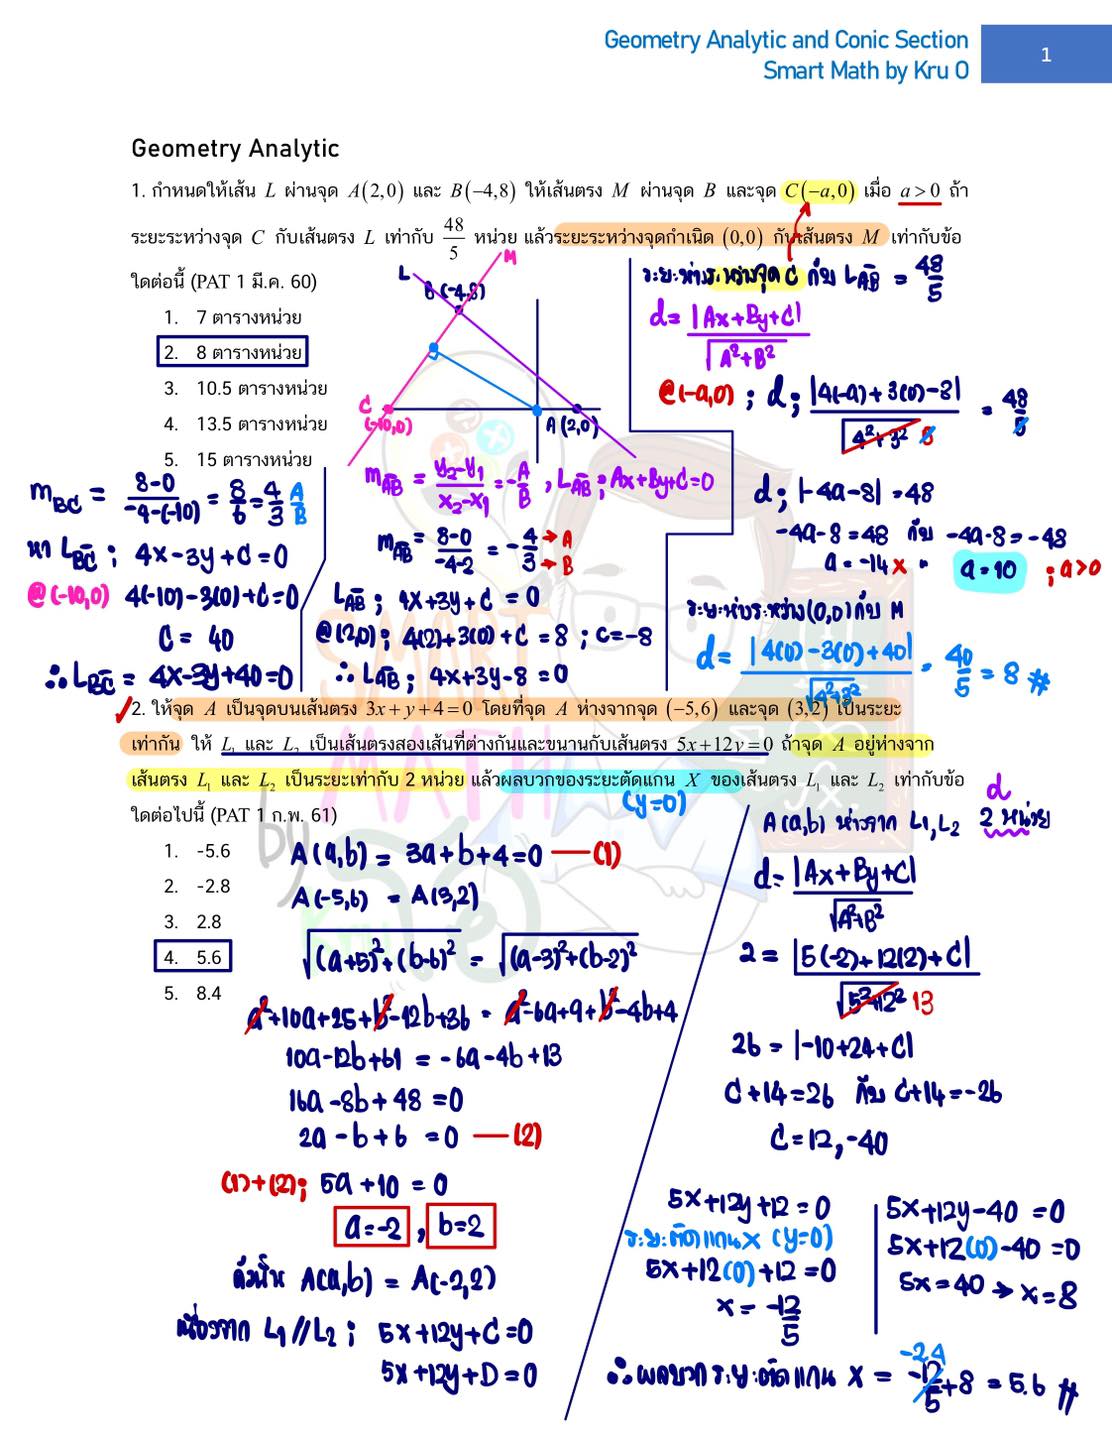 Geometry Analytic and Conic Section
Smart Math by Kru O
1
Geometry Analytic
1. กำหนดให้เส้น L ผ่านจุด A(2,0) และ B(−4,8) ให้เส้นตรง M ผ่านจุด B และจุด C(−a,0) เมื่อ a > 0 ถ้า
ระยะระหว่างจุด C กับเส้นตรง L เท่ากับ 48/5 หน่วย แล้วระยะระหว่างจุดกำเนิด (0,0) กับเส้นตรง M เท่ากับข้อ
ใดต่อนี้ (PAT 1 มี.ค. 60)
1. 7 ตารางหน่วย
2. 8 ตารางหน่วย
3. 10.5 ตารางหน่วย
4. 13.5 ตารางหน่วย
5. 15 ตารางหน่วย
L
M
B (-4,8)
C
(-10,0)
A (2,0)
ระยะห่างระหว่างจุด C กับ L_AB = 48/5
d = |Ax+By+C| / √(A²+B²)
@(-a,0) ; d ; |4(-a)+3(0)-8| / √(4²+3²) 5 = 48/5
d ; |-4a-8| = 48
-4a-8 = 48 กับ -4a-8 = -48
a = -14 x a = 10 ; a>0
ระยะห่างระหว่าง (0,0) กับ M
d = |4(0)-3(0)+40| / √(4²+3²) = 40/5 = 8 #
m_AB = (y₂-y₁)/(x₂-x₁) = -A/B , L_AB ; Ax+By+C=0
m_AB = (8-0)/(-4-2) = -4/3 → A → B
L_AB ; 4x+3y+C = 0
@(2,0) ; 4(2)+3(0)+C = 8 ; C=-8
∴ L_AB ; 4x+3y-8 = 0
m_BC = (8-0)/(-4-(-10)) = 8/6 = 4/3 A/B
หา L_BC ; 4x-3y+C = 0
@(-10,0) 4(-10)-3(0)+C=0
C = 40
∴ L_BC = 4x-3y+40=0
2. ให้จุด A เป็นจุดบนเส้นตรง 3x + y + 4 = 0 โดยที่จุด A ห่างจากจุด (−5,6) และจุด (3,2) เป็นระยะ
เท่ากัน ให้ L₁ และ L₂ เป็นเส้นตรงสองเส้นที่ต่างกันและขนานกับเส้นตรง 5x + 12y = 0 ถ้าจุด A อยู่ห่างจาก
เส้นตรง L₁ และ L₂ เป็นระยะเท่ากับ 2 หน่วย แล้วผลบวกของระยะตัดแกน X ของเส้นตรง L₁ และ L₂ เท่ากับข้อ
(y=0)
ใดต่อไปนี้ (PAT 1 ก.พ. 61)
1. -5.6
2. -2.8
3. 2.8
4. 5.6
5. 8.4
A(a,b) = 3a+b+4=0 —(1)
A(-5,6) = A(3,2)
√((a+5)²+(b-6)²) = √((a-3)²+(b-2)²)
a²+10a+25+b²-12b+36 = a²-6a+9+b²-4b+4
10a-12b+61 = -6a-4b+13
16a-8b+48 = 0
2a-b+6 = 0 —(2)
(1)+(2) ; 5a+10 = 0
a=-2 , b=2
ดังนั้น A(a,b) = A(-2,2)
เนื่องจาก L₁ // L₂ ; 5x+12y+C=0
5x+12y+D=0
d
A(a,b) ห่างจาก L₁,L₂ 2 หน่วย
d = |Ax+By+C| / √(A²+B²)
2 = |5(-2)+12(2)+C| / √(5²+12²) 13
26 = |-10+24+C|
C+14=26 กับ C+14=-26
C = 12,-40
5x+12y+12 = 0
ระยะตัดแกน X (y=0)
5x+12(0)+12=0
x = -12/5
5x+12y-40 = 0
5x+12(0)-40 = 0
5x=40 → x=8
∴ ผลบวกระยะตัดแกน X = -12/5 -2.4 +8 = 5.6 #
SMART
MATH
by
Kru